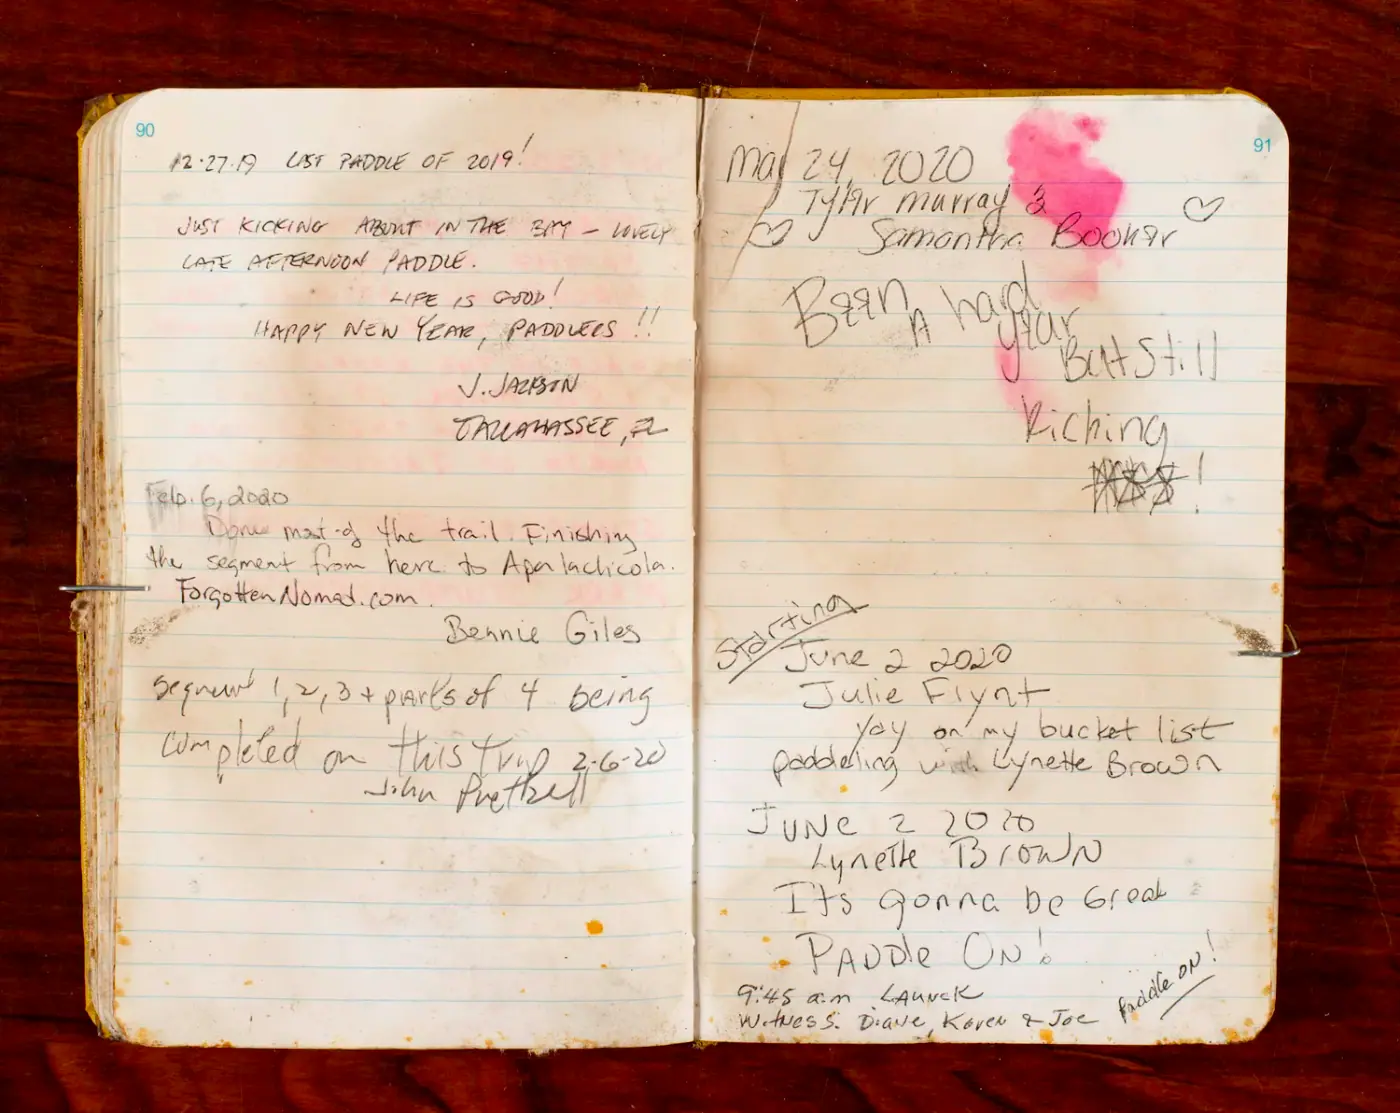 90
12·27·19 LAST PADDLE OF 2019!
JUST KICKING ABOUT IN THE BAY – LOVELY
LATE AFTERNOON PADDLE.
LIFE IS GOOD!
HAPPY NEW YEAR, PADDLERS!!
J. JACKSON
TALLAHASSEE, FL
Feb. 6, 2020
Done most of the trail. Finishing
the segment from here to Apalachicola.
ForgottenNomad.com.
Bennie Giles
Segment 1, 2, 3 + parts of 4 being
completed on this trip 2-6-20
John
91
May 24, 2020
Tyler Murray &
Samantha Booker
Been A hard
year
But Still
Kicking
!
Starting
June 2 2020
Julie Flynt
Yay on my bucket list
paddeling with Lynette Brown
JUNE 2 2020
Lynette BROWN
It's gonna be Great
PADDle ON!
9:45 a.m LAUNCK
Witness: Diane, Karen & Joe
Paddle ON!